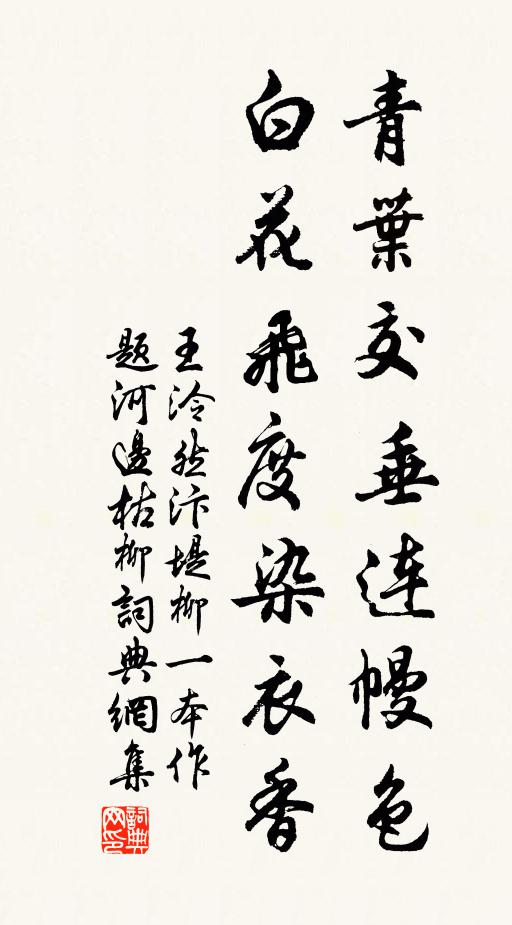 青葉交垂連幔色
白花飛度染衣香
王泠然汴堤柳一本作
題河邊枯柳詞典網集
詞典網印